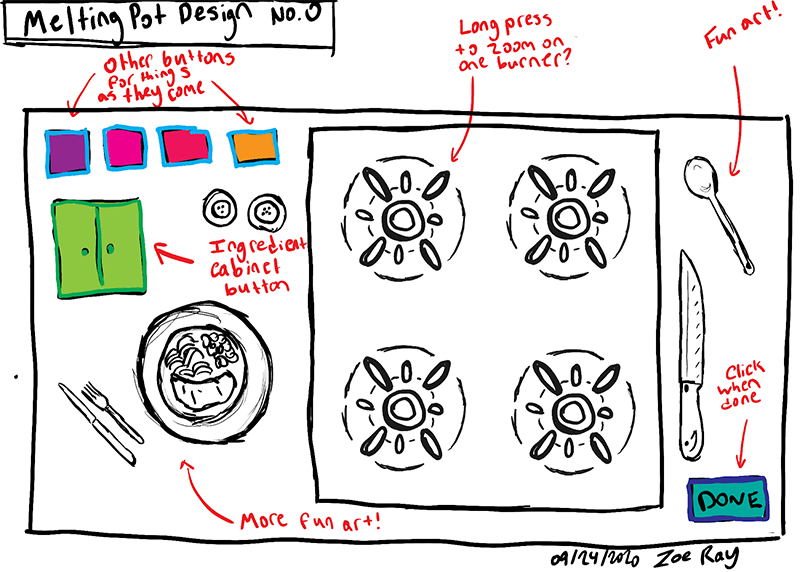 Melting Pot Design No. 0
Other buttons
for things
as they come
Long press
to zoom on
one burner?
Fun art!
Ingredient
cabinet
button
Click
when
done
DONE
More fun art!
09/24/2020 Zoe Ray